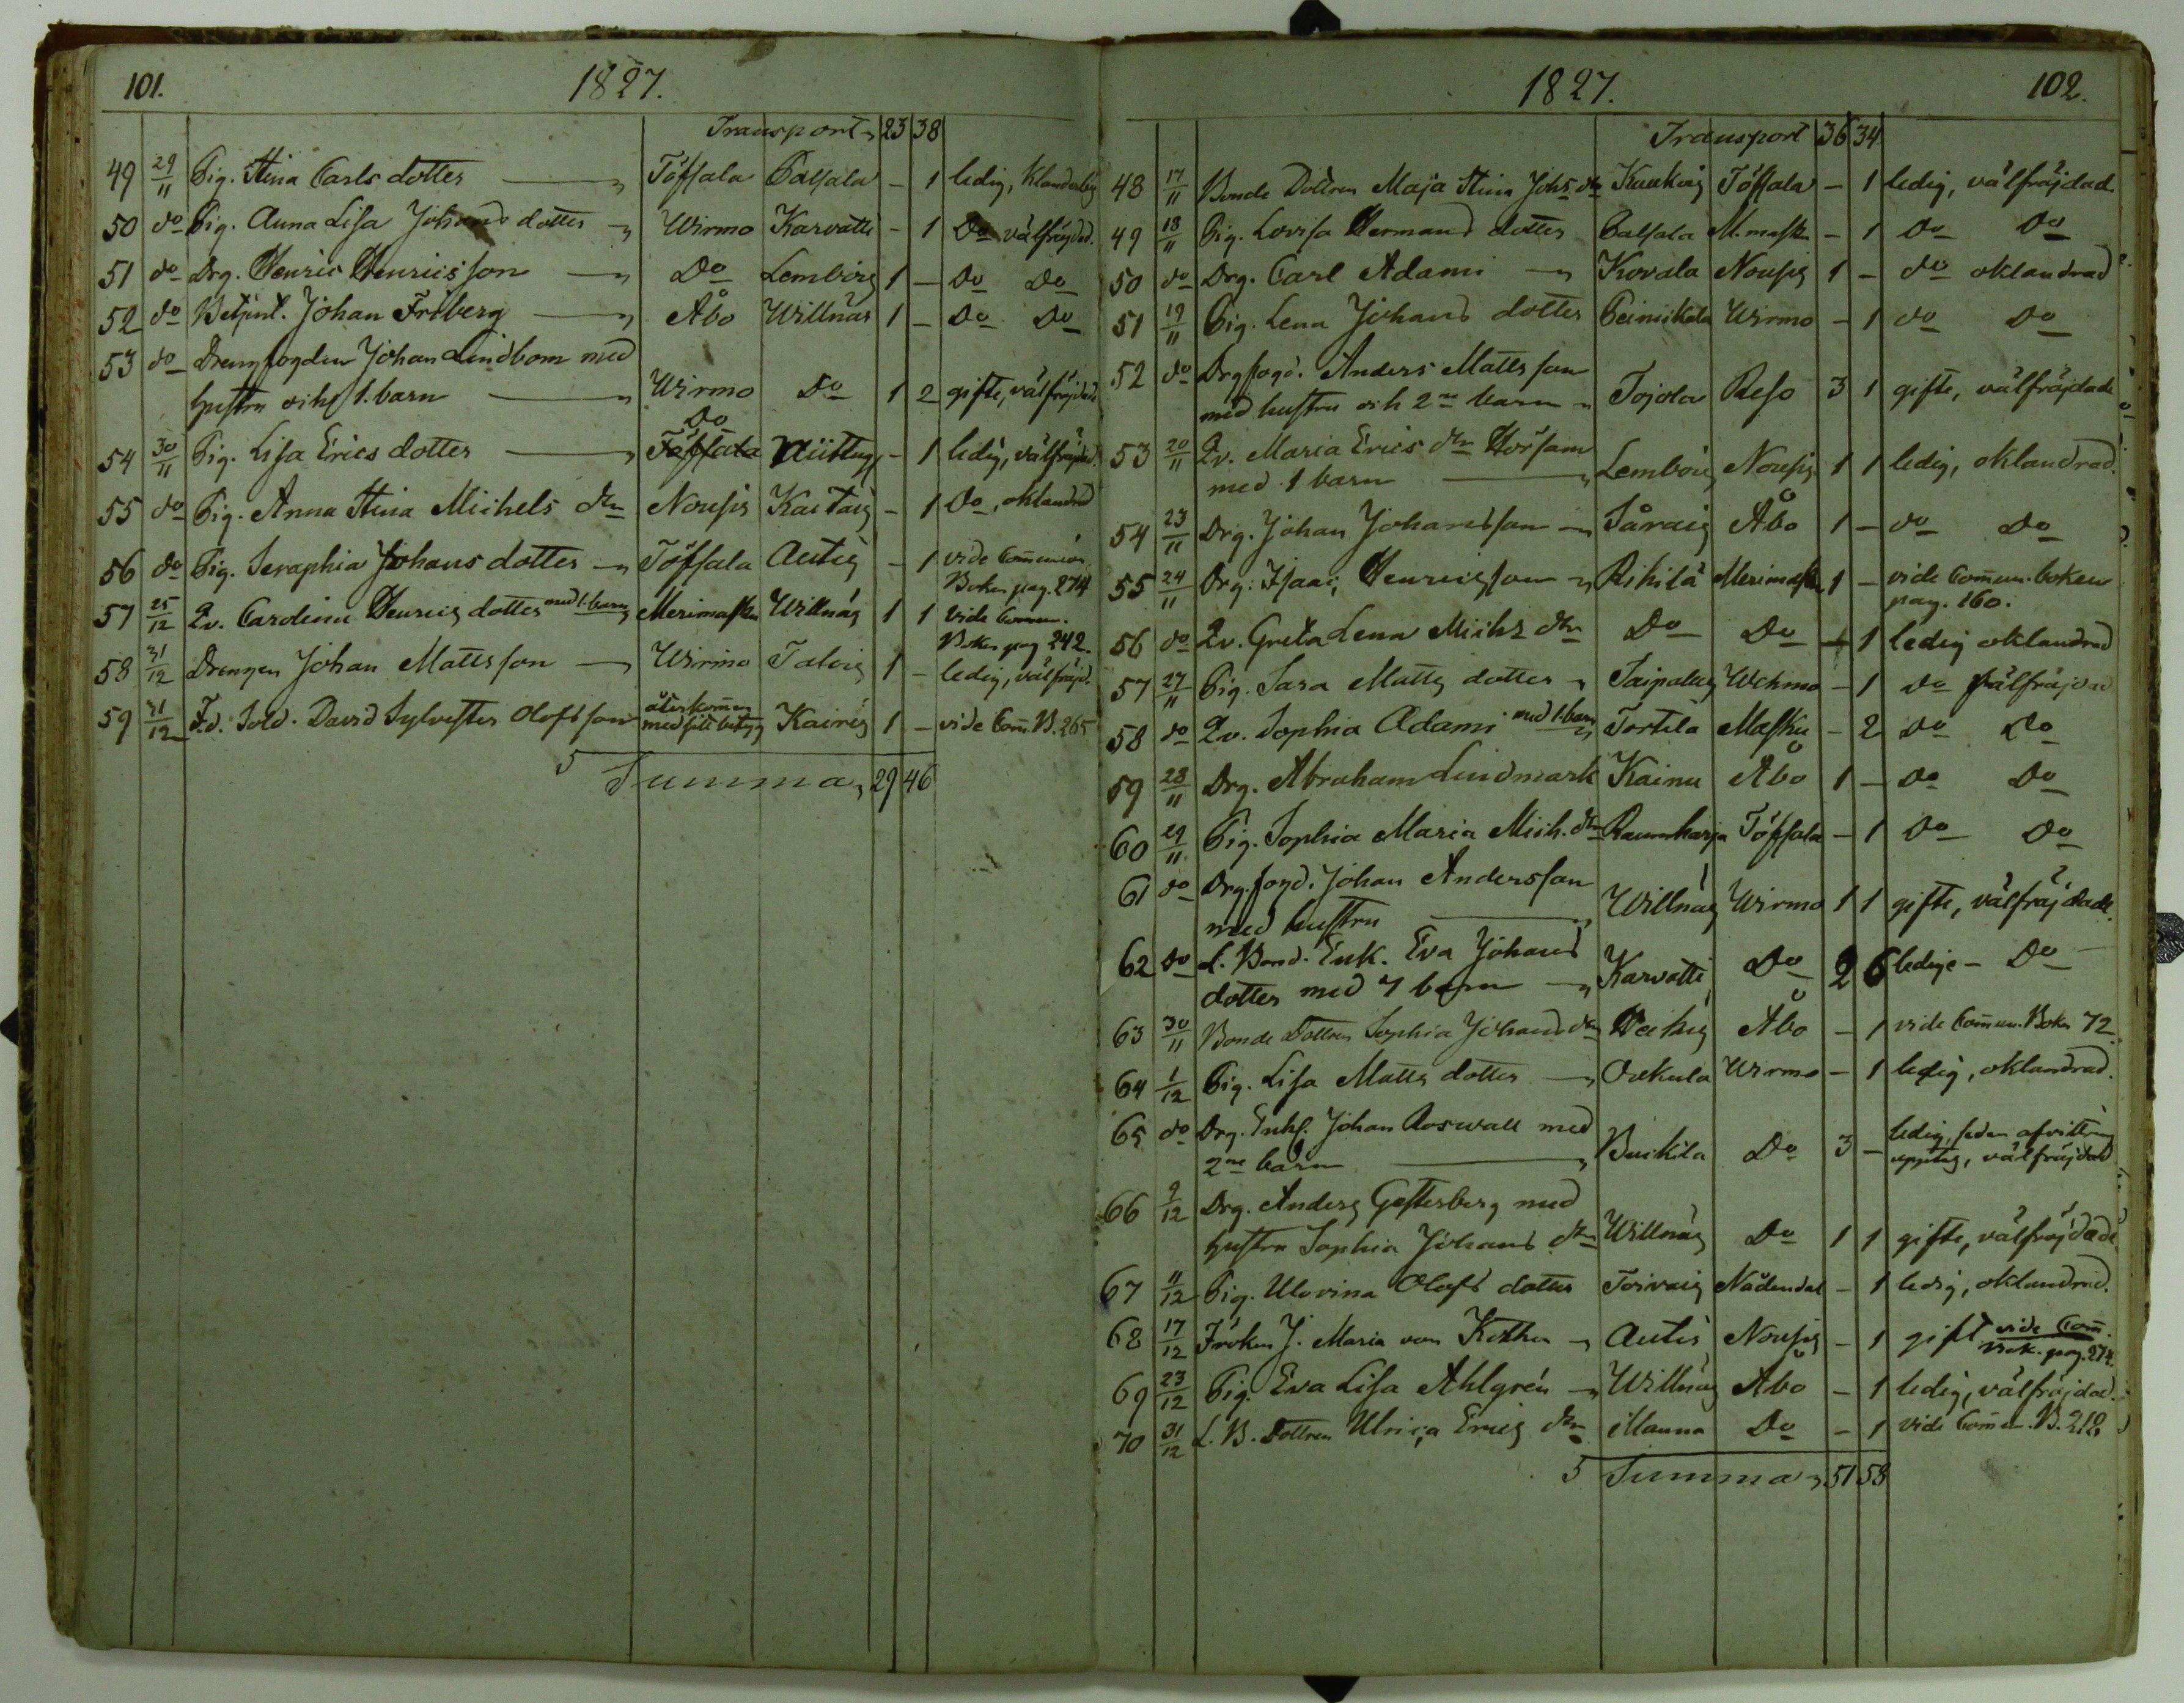 101.
1827.
Transport 23 38
49 29/11 Pig. Stina Carls dotter Töfsala Palsala - 1 ledig, klanderlig
50 do Pig. Anna Lisa Johans dotter Wirmo Karvatti - 1 Do välfräjdad.
51 do Drg. Henric Henricsson Do Lemböig 1 - Do Do
52 do Betjent. Johan Friberg Åbo Willnäs 1 - Do Do
53 do Drengfogden Johan Lindbom med
hustru och 1. barn Wirmo Do 1 2 gifte, välfräjdade
Do
54 30/11 Pig. Lisa Erics dotter Töfsala - 1 ledig, välfräjdad.
55 do Pig. Anna Stina Michels dtr Nousis Kaitaig - 1 Do, oklandrad
56 do Pig. Seraphia Johans dotter Töfsala Autig - 1 vide Communion
Boken pag. 274
57 25/12 Qv. Carolina Henrics dotter med 1. barn Merimasku Willnäs 1 1 vide Commun.
Boken pag 242.
58 31/12 Drengen Johan Mattsson Wirmo Taloig 1 - ledig, välfräjd.
59 31/12 F.d. Sold. David Sylvester Olofsson återkommen
med sitt betyg Kairis 1 - vide Com. B. 265
Summa 29 46
1827.
102.
Transport 36 34
48 17/11 Bonde Dottren Maja Stina Johs dtr Kaukaig Töfsala - 1 ledig, välfräjdad.
49 18/11 Pig. Lovisa Hermans dotter Palsala M.mask - 1 Do Do
50 do Drg. Carl Adami Kovala Nousis 1 - do oklandrad
51 19/11 Pig. Lena Johans dotter Peinikala Wirmo - 1 do Do
52 do Drgfogd. Anders Mattsson
med hustru och 2ne barn Tojola Reso 3 1 gifte, välfräjdade
53 20/11 Qv. Maria Erics dtr Hörsam
med 1 barn Lemböig Nousis 1 1 ledig, oklandrad.
54 23/11 Drg. Johan Johansson Såraig Åbo 1 - do Do
55 24/11 Drg. Isaac Henricsson Rihilä Merimask 1 - vide Commun. boken
pag. 160.
56 do Qv. Greta Lena Michs dtr Do Do - 1 ledig oklandrad
57 27/11 Pig. Sara Matts dotter Taipalus Wehmo - 1 do välfräjdad
58 do Qv. Sophia Adami med 1. barn Tortila Masku - 2 do Do
59 28/11 Drg. Abraham Lindmark Kainu Åbo 1 - Do Do
60 29/11 Pig. Sophia Maria Mich. dtr Raumharja Töfsala - 1 Do Do
61 do Drg.fogd. Johan Andersson
med hustru Willnäs Wirmo 1 1 gifte, välfräjdade.
62 do L. Bond. Enk. Eva Johans
dotter med 7 barn Karvatti Do 2 6 ledige - Do
63 30/11 Bonde Dottren Sophia Johans dtr Åbo - 1 vide Commun. Boken 72
64 1/12 Pig. Lisa Matts dotter Ovkula Wirmo - 1 ledig, oklandrad.
65 do Drg. Enkl. Johan Roswall med
2ne barn Buikila Do 3 - ledig, sedan afvittring
upptag, välfräjdad
66 9/12 Drg. Anders Gesterberg med
hustru Sophia Johans dtr Willnäs Do 1 1 gifte, välfräjdade
67 11/12 Pig. Ulovina Olofs dotter Toivaig Nådendal - 1 ledig, oklandrad.
68 17/12 Fröken J. Maria von Kothen Autis Nousis - 1 gift vide Com.
Bok. pag. 274.
69 23/12 Pig. Eva Lisa Ahlgrén Willnäs Åbo - 1 ledig, välfräjdad.
70 31/12 L. B. Dottren Ulrica Erics dtr Manna Do - 1 vide Commun. B. 212
Summa 51 58